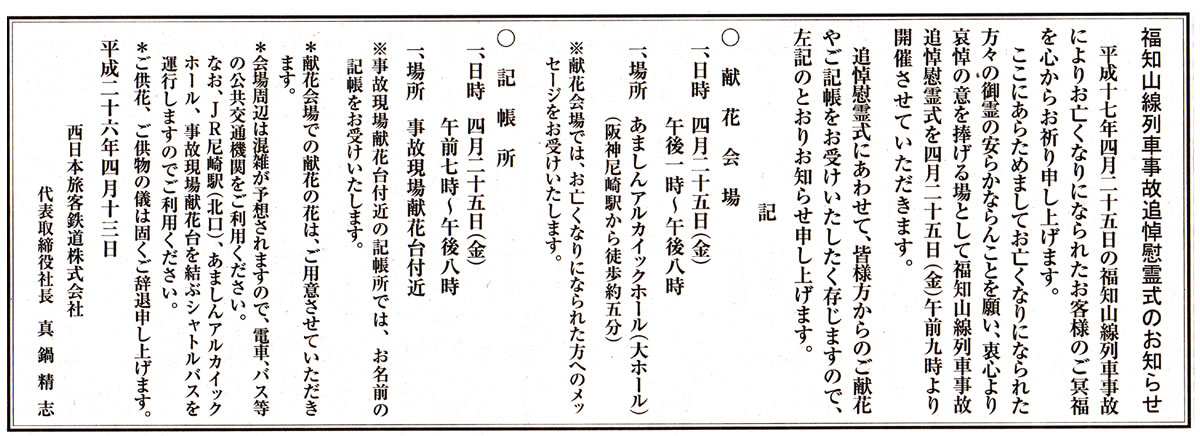 福知山線列車事故追悼慰霊式のお知らせ
平成十七年四月二十五日の福知山線列車事故
によりお亡くなりになられたお客様のご冥福
を心からお祈り申し上げます。
ここにあらためましてお亡くなりになられた
方々の御霊の安らかならんことを願い、衷心より
哀悼の意を捧げる場として福知山線列車事故
追悼慰霊式を四月二十五日(金)午前九時より
開催させていただきます。
追悼慰霊式にあわせて、皆様方からのご献花
やご記帳をお受けいたしたく存じますので、
左記のとおりお知らせ申し上げます。
記
○ 献花会場
一、日時 四月二十五日(金)
午後一時〜午後八時
一、場所 あましんアルカイックホール(大ホール)
(阪神尼崎駅から徒歩約五分)
※献花会場では、お亡くなりになられた方へのメッ
セージをお受けいたします。
○ 記帳所
一、日時 四月二十五日(金)
午前七時〜午後八時
一、場所 事故現場献花台付近
※事故現場献花台付近の記帳所では、お名前の
記帳をお受けいたします。
*献花会場での献花の花は、ご用意させていただき
ます。
*会場周辺は混雑が予想されますので、電車、バス等
の公共交通機関をご利用ください。
なお、JR尼崎駅(北口)、あましんアルカイック
ホール、事故現場献花台を結ぶシャトルバスを
運行しますのでご利用ください。
*ご供花、ご供物の儀は固くご辞退申し上げます。
平成二十六年四月十三日
西日本旅客鉄道株式会社
代表取締役社長 真鍋精志